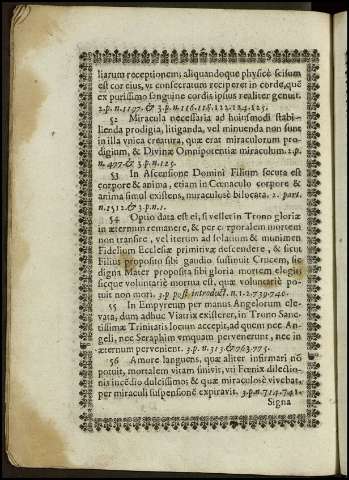 liarum receptionem; aliquandoque physicè scisum
est cor eius, vt consecratum reciperet in corde, quē
ex purissimo sanguine cordis ipsius realiter genuit.
2.p.n.1197. & 3.p.n.116.118.122.124.125.
52 Miracula necessaria ad huiusmodi stabi-
lienda prodigia, litiganda, vel minuenda non sunt
in illa vnica creatura, quæ erat miraculorum pro-
digium, & Divinæ Omnipotentiæ miraculum. 2.p.
n.477. & 3.p.n.125.
53 In Ascensione Domini Filium secuta est
corpore & anima, etiam in Cœnaculo corpore &
anima simul existens, miraculosè bilocata. 2. part.
n.1512. & 3.p.n.1.
54 Optio data est ei, si vellet in Trono gloriæ
in æternum remanere, & per corporalem mortem
non transire, vel iterum ad solatium & munimen
Fidelium Ecclesiæ primitivæ descendere, & sicut
Filius proposito sibi gaudio sustinuit Crucem, sic
digna Mater proposita sibi gloria mortem elegit;
sicque voluntariè mortua est, quæ voluntariè po-
tuit non mori. 3.p. post introduct. n.1.2.739.740.
55 In Empyreum per manus Angelorum ele-
vata, dum adhuc Viatrix existeret, in Trono Sanc-
tissimæ Trinitatis locum accepit, ad quem nec An-
geli, nec Seraphim vmquam pervenerunt, nec in
æternum pervenient. 3.p.n.313. & 763.775.
56 Amore languens, quæ aliter infirmari nō
potuit, mortalem vitam finivit, vti Fœnix dilectio-
nis incēdio dulcissimo; & quæ miraculosè vivebat,
per miraculi suspensionē expiravit. 3.p.n.714.741.
Signa